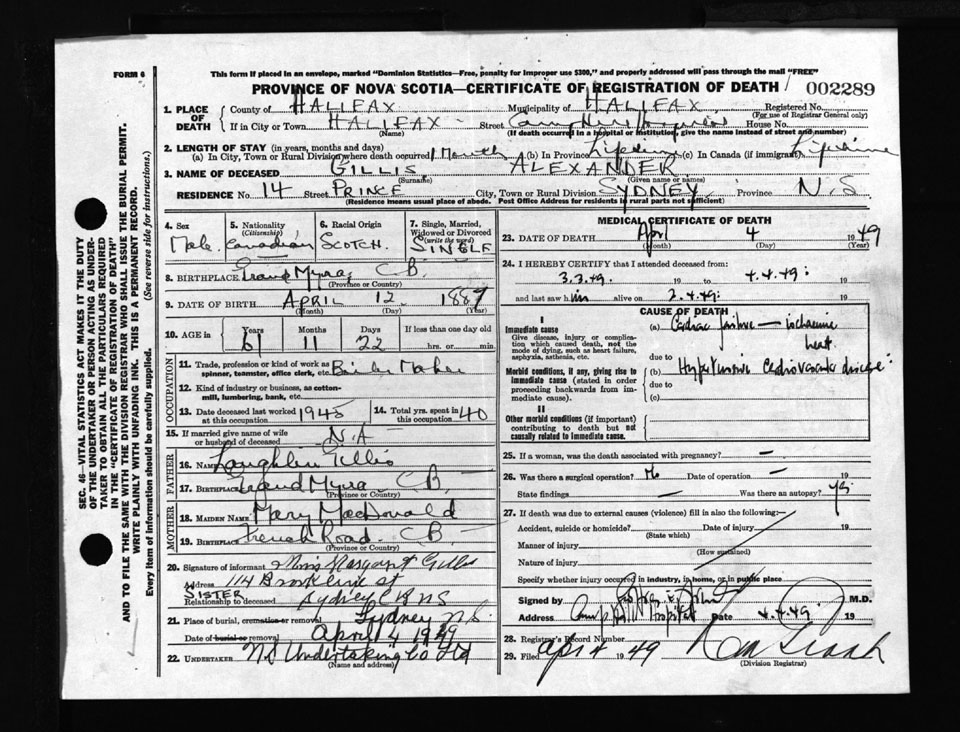 FORM 6
This form if placed in an envelope, marked "Dominion Statistics—Free, penalty for improper use $300," and properly addressed will pass through the mail "FREE"
PROVINCE OF NOVA SCOTIA—CERTIFICATE OF REGISTRATION OF DEATH 002289
1. PLACE OF DEATH County of HALIFAX Municipality of HALIFAX Registered No.
(For use of Registrar General only)
If in City or Town HALIFAX Street Camp Hill Hospital House No.
(Name) (If death occurred in a hospital or institution, give the name instead of street and number)
2. LENGTH OF STAY (in years, months and days)
(a) In City, Town or Rural Division where death occurred 1 Month (b) In Province Lifetime (c) In Canada (if immigrant) Lifetime
3. NAME OF DECEASED GILLIS ALEXANDER
(Surname) (Given name or names)
RESIDENCE No. 14 Street PRINCE City, Town or Rural Division SYDNEY Province N.S
(Residence means usual place of abode. Post Office Address for residents in rural parts not sufficient)
4. Sex 5. Nationality (Citizenship) 6. Racial Origin 7. Single, Married, Widowed or Divorced (write the word)
Male Canadian SCOTCH SINGLE
8. BIRTHPLACE Grand Myra, C B.
(Province or Country)
9. DATE OF BIRTH APRIL 12 1887
(Month) (Day) (Year)
10. AGE in Years Months Days If less than one day old
61 11 22 hrs. or min.
OCCUPATION
11. Trade, profession or kind of work as spinner, teamster, office clerk, etc. Boiler Maker
12. Kind of industry or business, as cotton-mill, lumbering, bank, etc.
13. Date deceased last worked at this occupation 1948 14. Total yrs. spent in this occupation 40
15. If married give name of wife or husband of deceased N.A
FATHER
16. NAME Laughlin Gillis
17. BIRTHPLACE Grand Myra C B.
(Province or Country)
MOTHER
18. MAIDEN NAME Mary MacDonald
19. BIRTHPLACE French Road C B.
(Province or Country)
20. Signature of informant Miss Margaret Gillis
Address 114 Brookline st
SISTER
Relationship to deceased Sydney CB NS
21. Place of burial, cremation or removal Sydney N.S.
Date of burial or removal April 4 1949
22. UNDERTAKER NS Undertaking Co Ltd
(Name and address)
MEDICAL CERTIFICATE OF DEATH
23. DATE OF DEATH April 4 1949
(Month) (Day) (Year)
24. I HEREBY CERTIFY that I attended deceased from:
3.3.49. 19 to 4.4.49. 19
and last saw him alive on 2.4.49. 19
CAUSE OF DEATH
I
Immediate cause
Give disease, injury or complication which caused death, not the mode of dying, such as heart failure, asphyxia, asthenia, etc.
(a) Cardiac failure — ischaemic heart.
due to
Morbid conditions, if any, giving rise to immediate cause (stated in order proceeding backwards from immediate cause)
(b) Hypertensive Cardiovascular disease
due to
(c)
II
Other morbid conditions (if important) contributing to death but not causally related to immediate cause.
25. If a woman, was the death associated with pregnancy? —
26. Was there a surgical operation? No Date of operation — 19
State findings — Was there an autopsy? yes
27. If death was due to external causes (violence) fill in also the following:—
Accident, suicide or homicide? Date of injury 19
(State which)
Manner of injury
(How sustained)
Nature of injury
Specify whether injury occurred in industry, in home, or in public place
Signed by M.D.
Address Camp Hill Hospital Date 4.4.49. 19
28. Registrar's Record Number
29. Filed Apr 4 1949
(Division Registrar)
SEC. 46—VITAL STATISTICS ACT MAKES IT THE DUTY OF THE UNDERTAKER OR PERSON ACTING AS UNDERTAKER TO OBTAIN ALL THE PARTICULARS REQUIRED IN THE "CERTIFICATE OF REGISTRATION OF DEATH"
AND TO FILE THE SAME WITH THE DIVISION REGISTRAR WHO SHALL ISSUE THE BURIAL PERMIT.
WRITE PLAINLY WITH UNFADING INK. THIS IS A PERMANENT RECORD.
Every item of information should be carefully supplied. (See reverse side for instructions.)